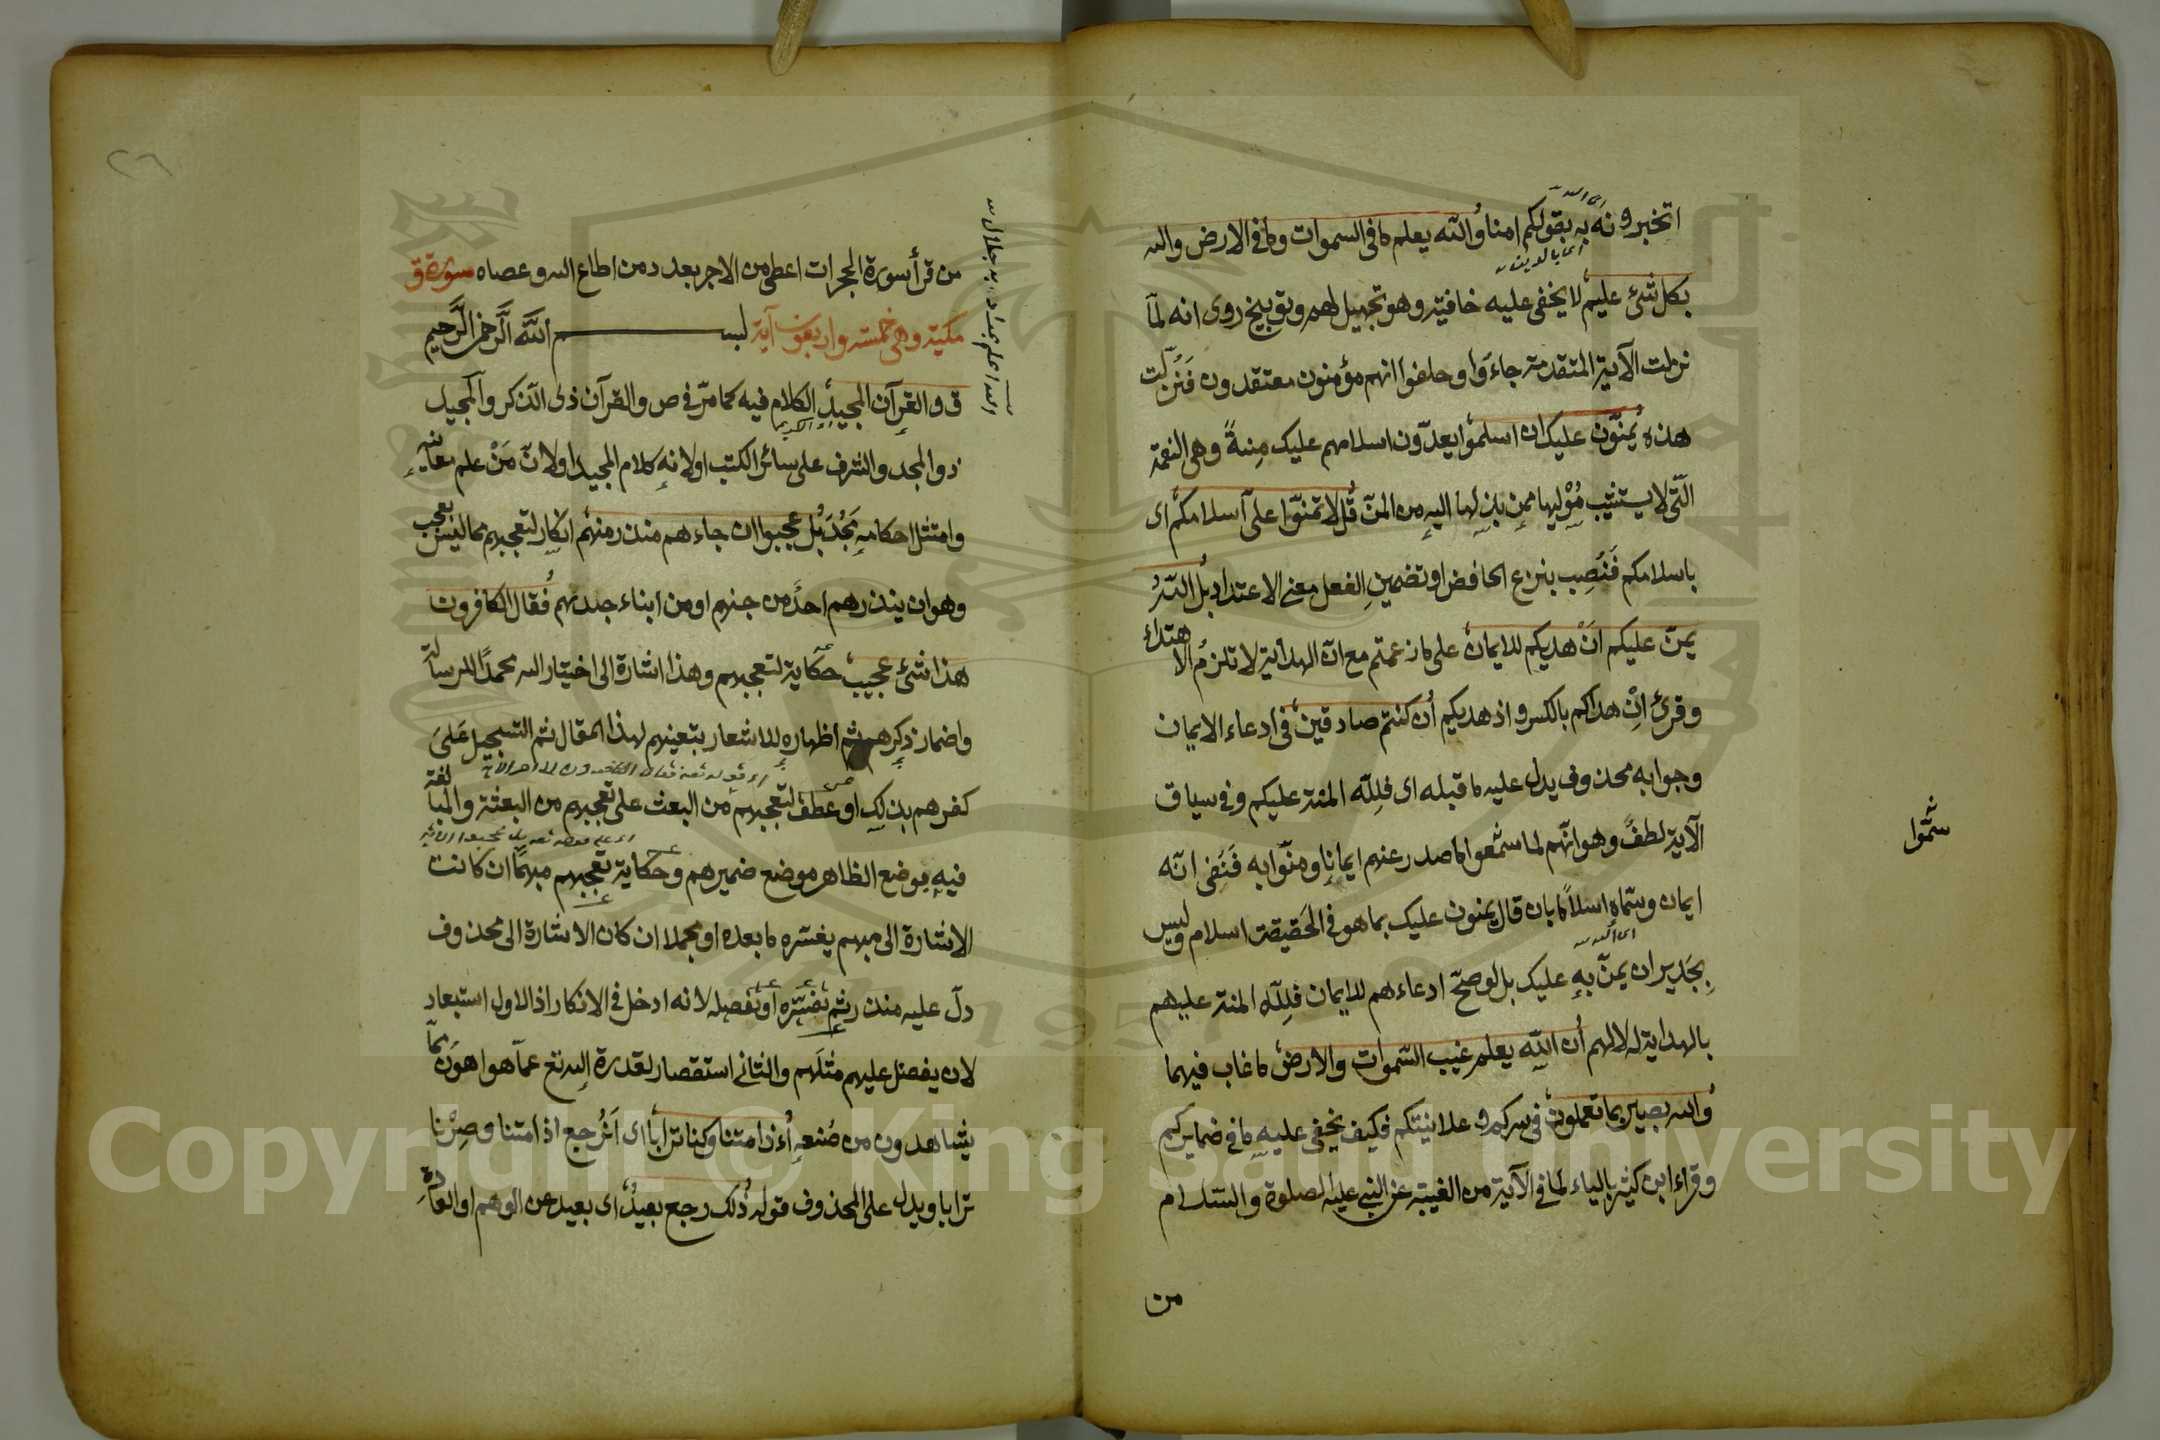 اتخبرونه به بقولكم امنا والله يعلم ما في السموات وما في الارض والله
بكل شئ عليم لا يخفى عليه خافية وهو تجهيل لهم وتوبيخ روى انه لما
نزلت الآية المتقدمة جاءوا وحلفوا انهم مؤمنون معتقدون فنزلت
هذه يمنون عليك ان اسلموا يعدون اسلامهم عليك منة وهى النعمة
التى لا يستثيب موليها ممن بذلها اليه من المن قل لا تمنوا على اسلامكم اى
باسلامكم فنصب بنزع الخافض او تضمين الفعل معنى الاعتداد بل الله
يمن عليكم ان هديكم للايمان على ما زعمتم مع ان الهداية لا تلزم الاهتداء
وقرئ ان هداكم بالكسر و اذ هديكم ان كنتم صادقين في ادعاء الايمان
وجوابه محذوف يدل عليه ما قبله اى فلله المنة عليكم وفي سياق
الآية لطف وهو انهم لما سموا ما صدر عنهم ايمانا ومنوا به فنفى انه
ايمان وسماه اسلاما بان قال يمنون عليك بما هو في الحقيقة اسلام وليس
بجدير ان يمن به عليك بل لو صح ادعاءهم للايمان فلله المنة عليهم
بالهداية له لا لهم ان الله يعلم غيب السموات والارض ما غاب فيهما
والله بصير بما تعملون في سركم وعلانيتكم فكيف يخفى عليه ما في ضمايركم
وقراء ابن كثير بالياء لما في الآية من الغيبة عن النبى عليه الصلوة والسلام
من
سموا
من قرأ سورة الحجرات اعطى من الاجر بعدد من اطاع الله وعصاه سورة ق
مكية وهى خمسة واربعون آية بسم الله الرحمن الرحيم
ق والقرآن المجيد الكلام فيه كما مر في ص والقرآن ذى الذكر والمجيد
ذو المجد والشرف على سائر الكتب او لانه كلام المجيد او لان من علم معانيه
وامتثل احكامه مجد بل عجبوا ان جاءهم منذر منهم انكار لتعجبهم مما ليس بعجب
وهو ان ينذرهم احد من جنسهم او من ابناء جلدتهم فقال الكافرون
هذا شئ عجيب حكاية لتعجبهم وهذا اشارة الى اختيار الله محمدا للرسالة
واضمار ذكرهم ثم اظهاره للاشعار بتعينهم لهذا المقال ثم التسجيل على
كفرهم بذلك او عطف لتعجبهم من البعث على تعجبهم من البعثة والمبالغة
فيه بوضع الظاهر موضع ضميرهم وحكاية تعجبهم مبهما ان كانت
الاشارة الى مبهم يفسره ما بعده او مجملا ان كان الاشارة الى محذوف
دل عليه منذر ثم تفسيره او تفصيله لانه ادخل في الانكار اذ الاول استبعاد
لان يفضل عليهم مثلهم والثانى استقصار لقدرة الله تع عما هو اهون مما
يشاهدون من صنعه أءذا متنا وكنا ترابا اى انرجع اذا متنا وصرنا
ترابا ويدل على المحذوف قوله ذلك رجع بعيد اى بعيد عن الوهم او العادة